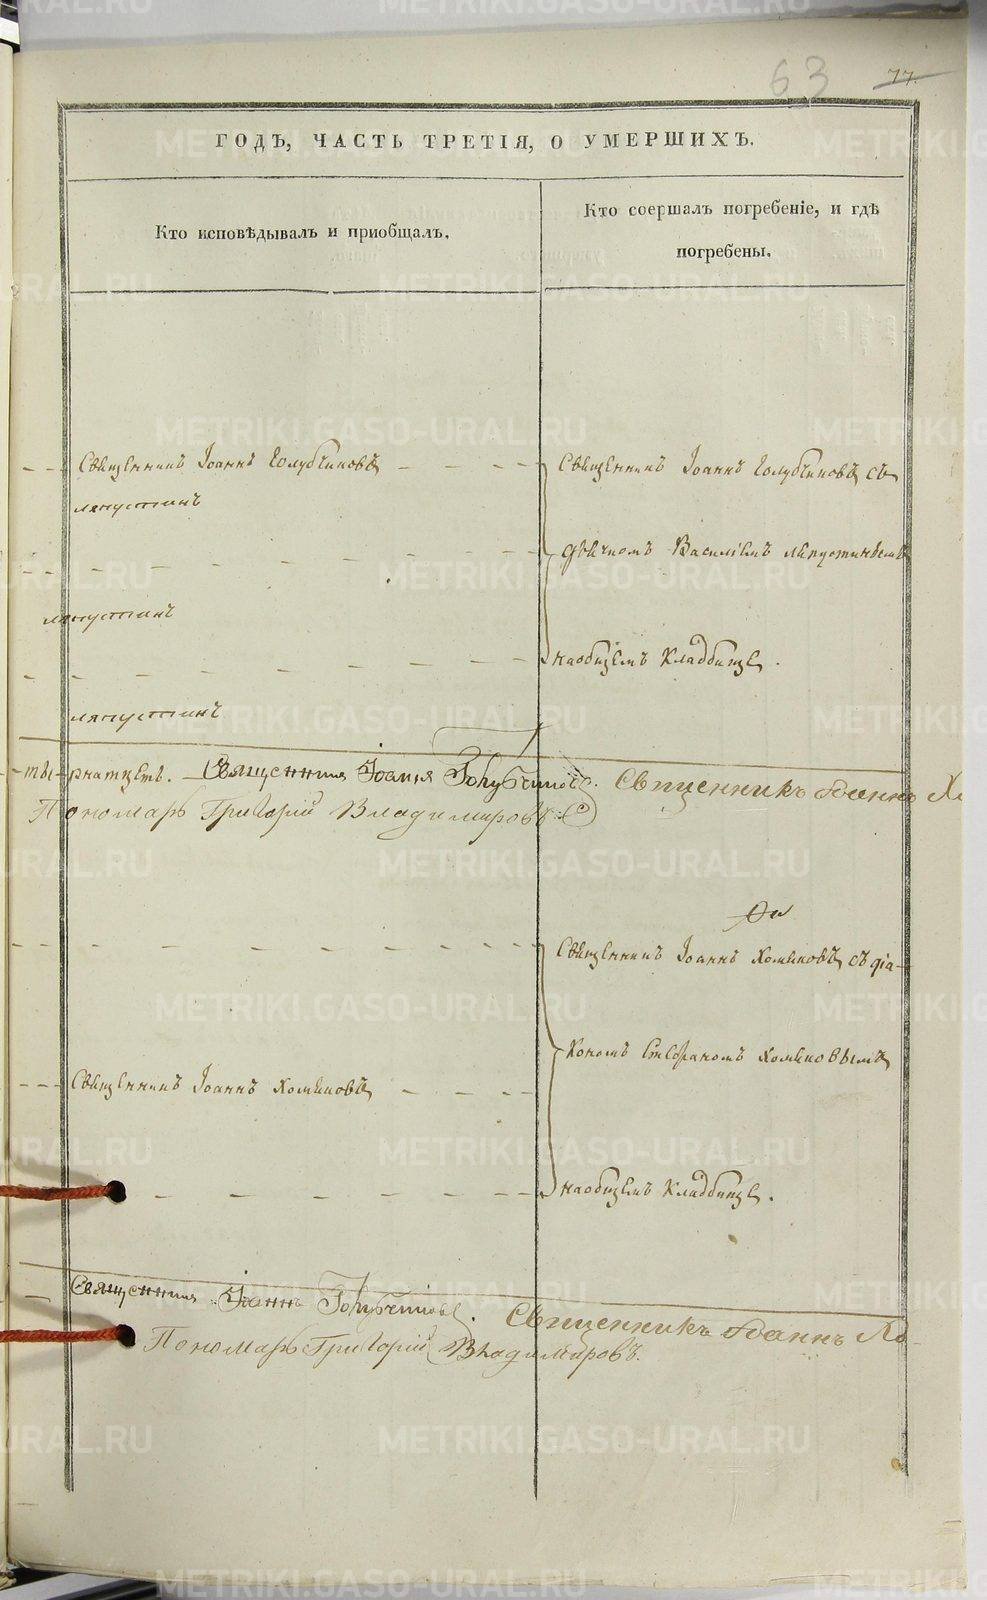 63
77.
ГОДЪ, ЧАСТЬ ТРЕТІЯ, О УМЕРШИХЪ.
Кто исповѣдывалъ и приобщалъ.
Кто соершалъ погребеніе, и гдѣ
погребены.
Священникъ Іоаннъ Голубчиковъ
Священникъ Іоаннъ Голубчиковъ съ
ляпустинъ
дьячкомъ Василіемъ ляпустинымъ
ляпустинъ
на общемъ кладбищѣ.
ляпустинъ
Священникъ Іоаннъ Голубчиковъ. Священникъ Іоаннъ Хо
Пономарь Григорій Владимировъ
Священникъ Іоаннъ Хомяковъ съ діа-
кономъ Стефаномъ Хомяковымъ
Священникъ Іоаннъ Хомяковъ
на общемъ кладбищѣ.
Священникъ Іоаннъ Голубчиковъ. Священникъ Іоаннъ Хо-
Пономарь Григорій Владимировъ.
METRIKI.GASO-URAL.RU